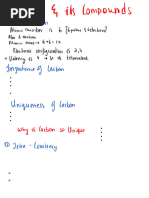 & its Compounds
Atomic number is 6 [6 protons & 6 electrons]
Also 6 neutrons
Atomic mass → 6+6 = 12
Electronic configuration is 2,4
→ Valency is 4 → So its tetravalent
Importance of Carbon
Uniqueness of Carbon
Why is Carbon so Unique
① Tetra - Covalency